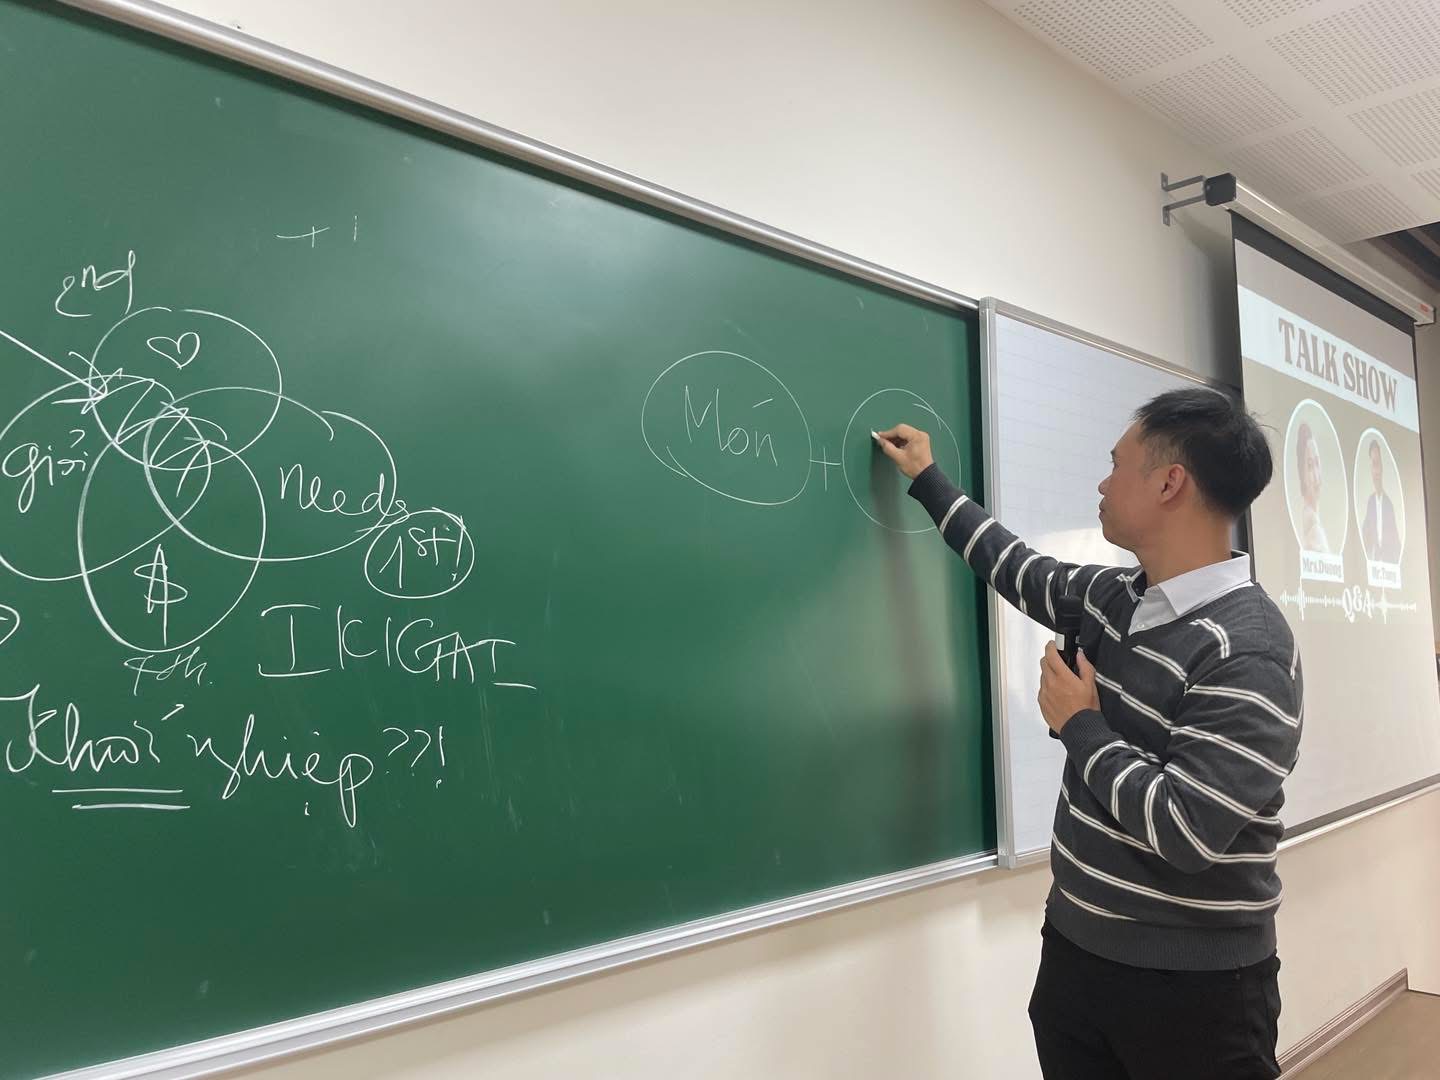 + 1
2nd
giỏi
needs
1st!
$
4th.
IKIGAI
Khởi nghiệp??!
Món
+
TALK SHOW
Mrs.Duong
Mr.Tung
Q&A